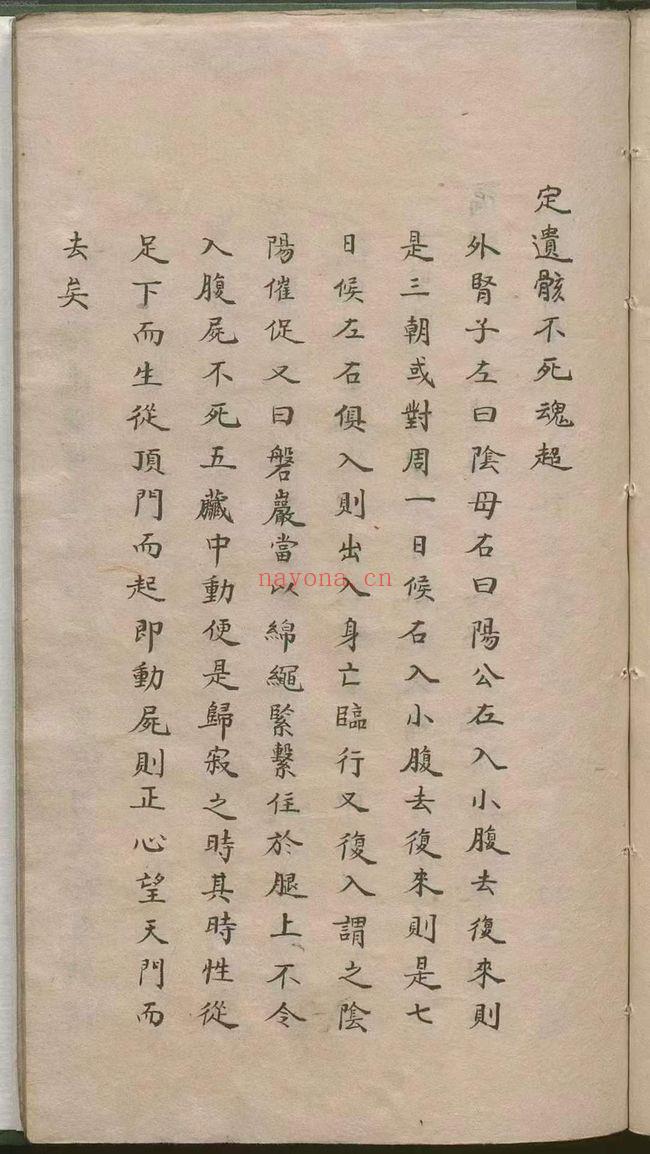 定遺骸不死魂超
外腎子左曰陰母右曰陽公左入小腹去復來則
是三朝或對周一日候右入小腹去復來則是七
日候左右俱入則出入身亡臨行又復入謂之陰
陽催促又曰磐巖當以綿繩緊繫住於腿上不令
入腹屍不死五臟中動便是歸寂之時其時性從
足下而生從頂門而起即動屍則正心望天門而
去矣
nayona.cn